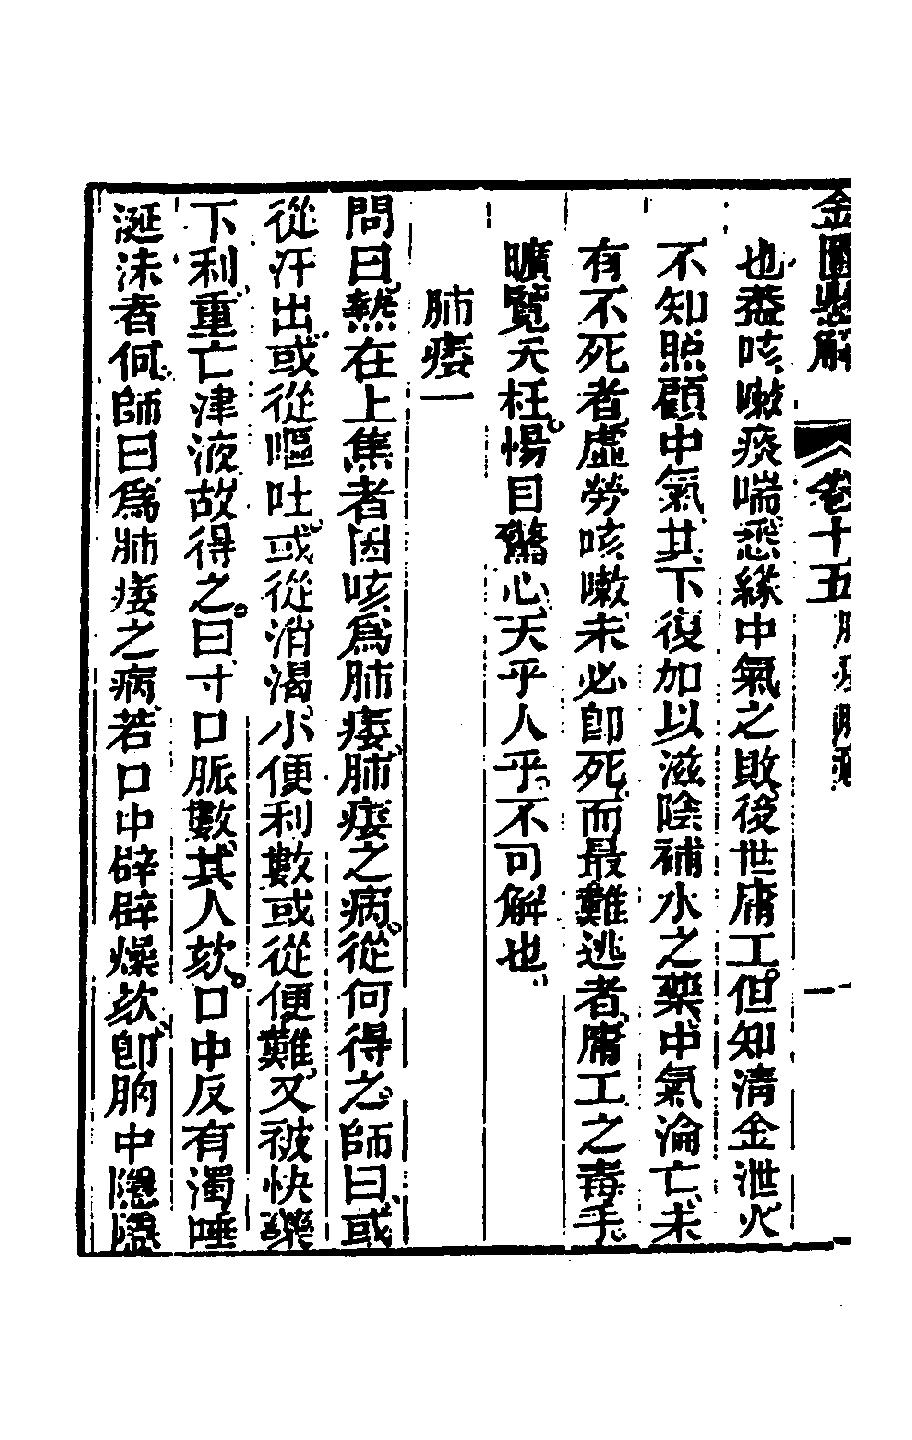 金匱懸解 卷十五 一
也蓋咳嗽痰喘悉緣中氣之敗後世庸工但知清金泄火
不知照顧中氣其下復加以滋陰補水之藥中氣淪亡未
有不死者虛勞咳嗽未必即死而最難逃者庸工之毒手
曠覽夭枉惕目驚心天乎人乎不可解也
肺痿一
問曰熱在上焦者因咳爲肺痿肺痿之病從何得之師曰或
從汗出或從嘔吐或從消渴小便利數或從便難又被快藥
下利重亡津液故得之曰寸口脈數其人欬口中反有濁唾
涎沫者何師曰爲肺痿之病若口中辟辟燥欬即胸中隱隱